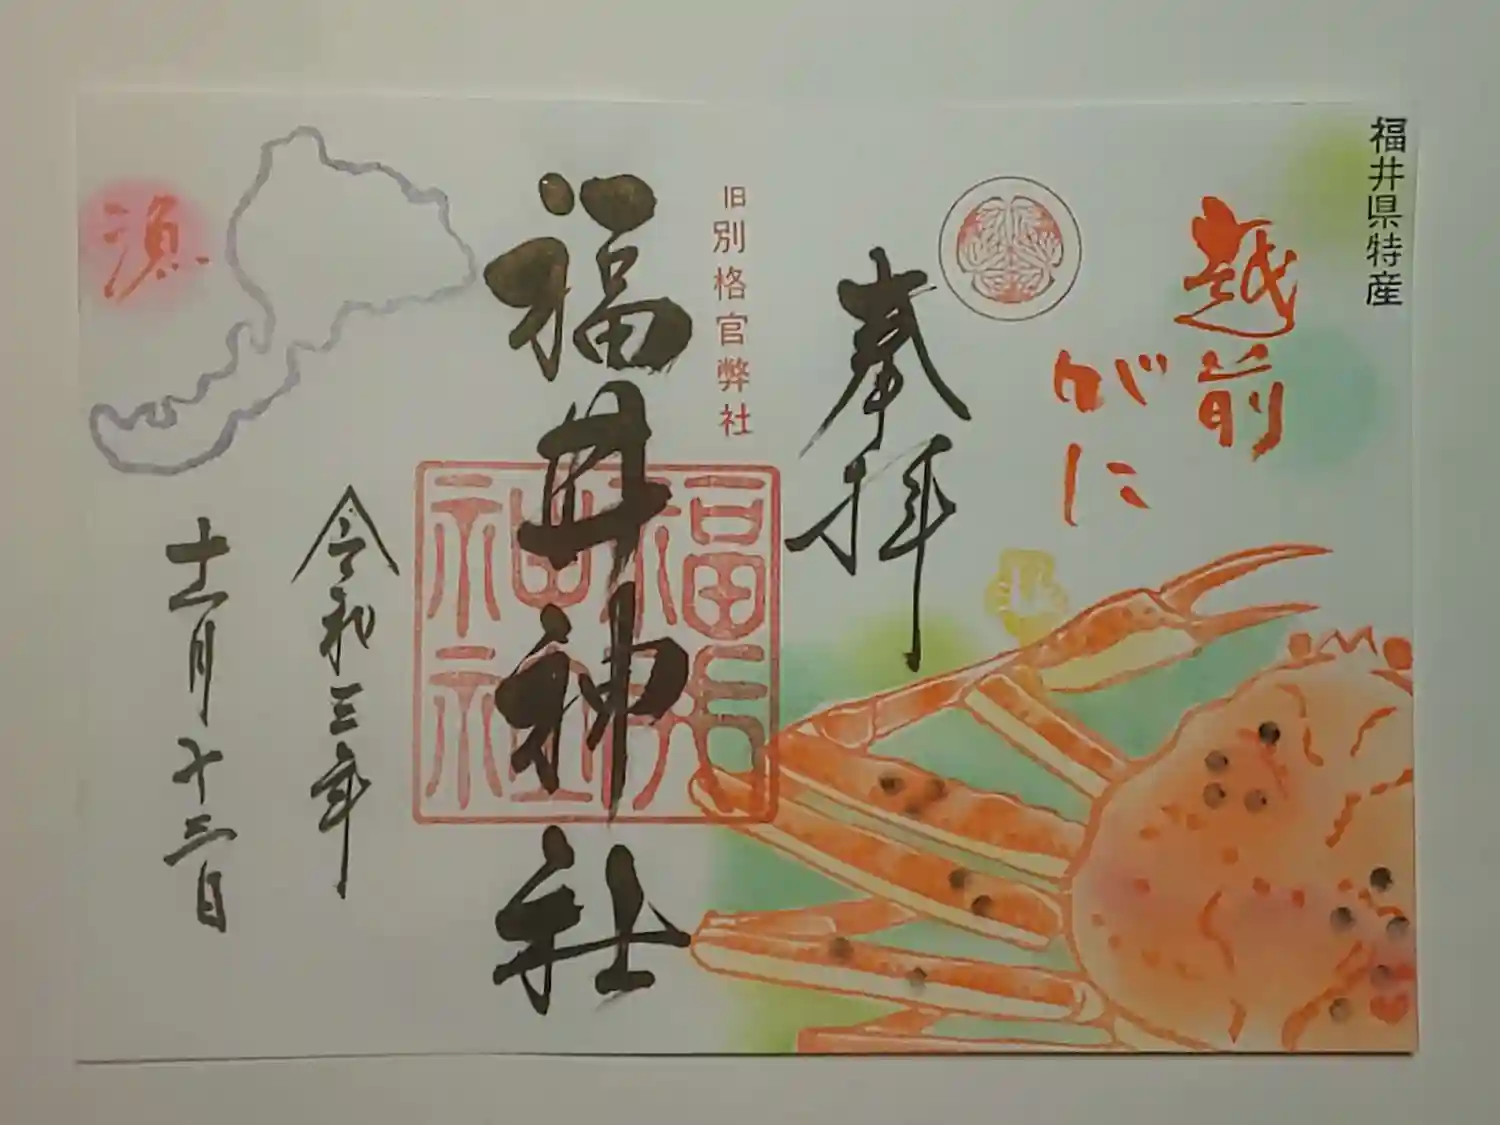 福井県特産
越前
がに
奉拝
旧別格官幣社
福井神社
福井
神社
令和三年
十二月十三日